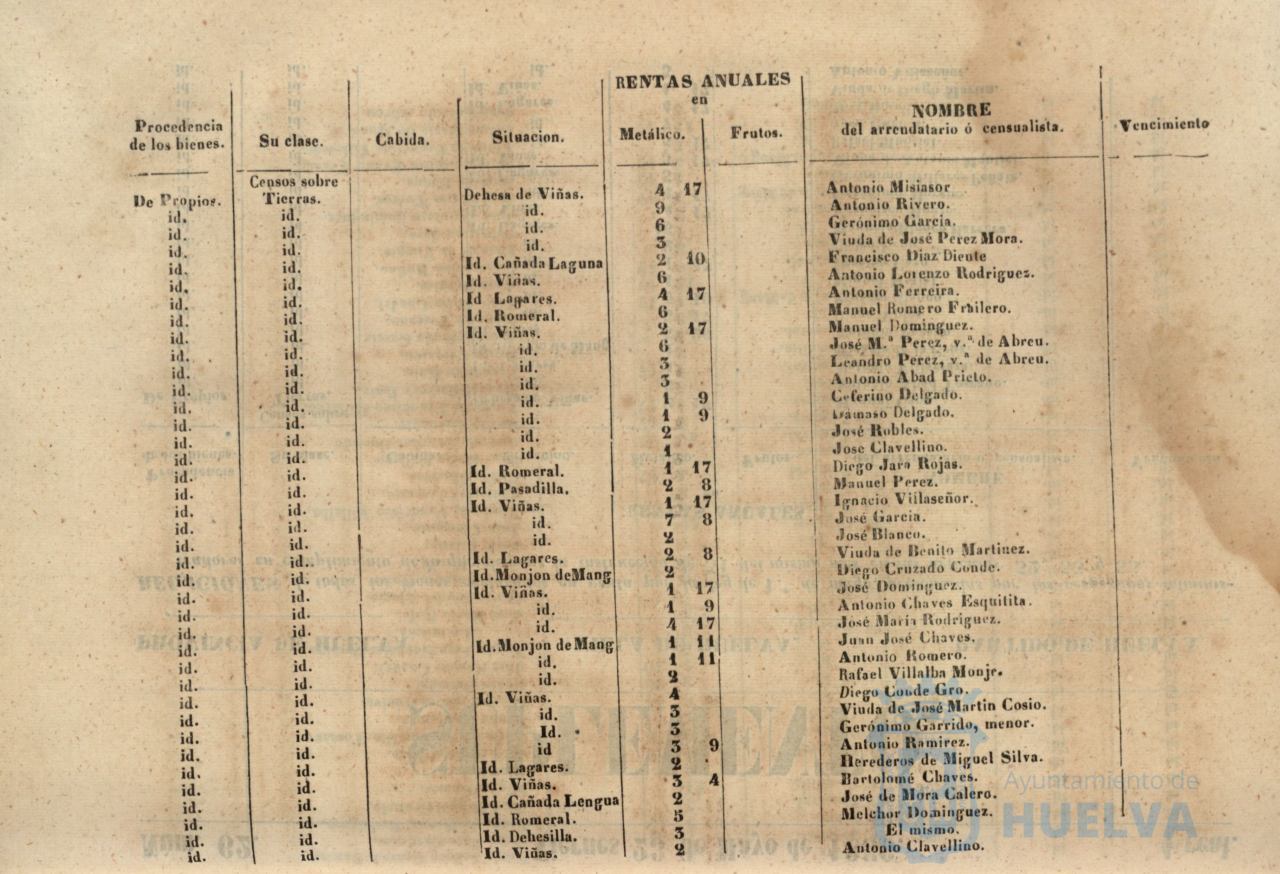 RENTAS ANUALES
en
Procedencia de los bienes. Su clase. Cabida. Situacion. Metálico. Frutos. NOMBRE del arrendatario ó censualista. Vencimiento
De Propios. Censos sobre Tierras. Dehesa de Viñas. 4 17 Antonio Misiasor
id. id. id. 9 Antonio Rivero.
id. id. id. 6 Gerónimo García.
id. id. id. 3 Viuda de José Perez Mora.
id. id. Id. Cañada Laguna 2 10 Francisco Diaz Diente
id. id. Id. Viñas. 6 Antonio Lorenzo Rodriguez.
id. id. Id Lagares. 4 17 Antonio Ferreira.
id. id. Id. Romeral. 6 Manuel Romero Frailero.
id. id. Id. Viñas. 2 17 Manuel Dominguez.
id. id. id. 6 José M.ª Perez, v.ª de Abreu.
id. id. id. 3 Leandro Perez, v.ª de Abreu.
id. id. id. 3 Antonio Abad Prieto.
id. id. id. 1 9 Ceferino Delgado.
id. id. id. 1 9 Damaso Delgado.
id. id. id. 2 José Robles.
id. id. id. 1 Jose Clavellino.
id. id. Id. Romeral. 1 17 Diego Jara Rojas.
id. id. Id. Pasadilla. 2 8 Manuel Perez.
id. id. Id. Viñas. 1 17 Ignacio Villaseñor.
id. id. id. 7 8 José Garcia.
id. id. id. 2 José Blanco.
id. id. Id. Lagares. 2 8 Viuda de Benito Martinez.
id. id. Id. Monjon de Mang 2 Diego Cruzado Conde.
id. id. Id. Viñas. 1 17 José Dominguez.
id. id. id. 1 9 Antonio Chaves Esquitita.
id. id. id. 4 17 José Maria Rodriguez.
id. id. Id. Monjon de Mang 1 11 Juan José Chaves.
id. id. id. 1 11 Antonio Romero.
id. id. id. 2 Rafael Villalba Monje.
id. id. Id. Viñas. 4 Diego Conde Gro.
id. id. id. 3 Viuda de José Martin Cosio.
id. id. Id. 3 Gerónimo Garrido, menor.
id. id. id 3 9 Antonio Ramirez.
id. id. Id. Lagares. 2 Herederos de Miguel Silva.
id. id. Id. Viñas. 3 4 Bartolomé Chaves.
id. id. Id. Cañada Lengua 2 José de Mora Calero.
id. id. Id. Romeral. 5 Melchor Dominguez.
id. id. Id. Dehesilla. 3 El mismo.
id. id. Id. Viñas. 2 Antonio Clavellino.
Ayuntamiento de
HUELVA